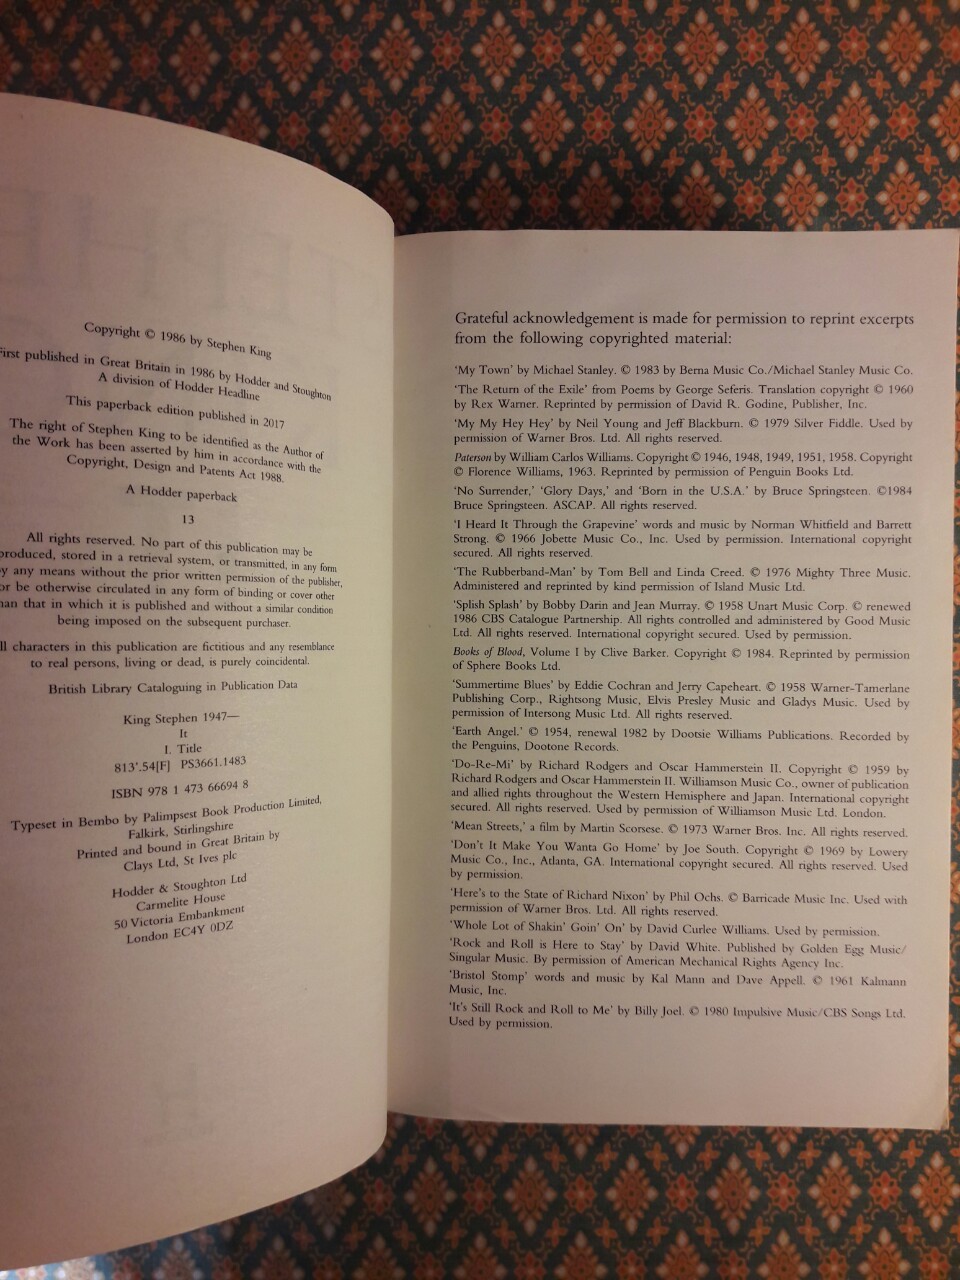 Copyright © 1986 by Stephen King
First published in Great Britain in 1986 by Hodder and Stoughton
A division of Hodder Headline
This paperback edition published in 2017
The right of Stephen King to be identified as the Author of
the Work has been asserted by him in accordance with the
Copyright, Design and Patents Act 1988.
A Hodder paperback
13
All rights reserved. No part of this publication may be
produced, stored in a retrieval system, or transmitted, in any form
by any means without the prior written permission of the publisher,
or be otherwise circulated in any form of binding or cover other
than that in which it is published and without a similar condition
being imposed on the subsequent purchaser.
ll characters in this publication are fictitious and any resemblance
to real persons, living or dead, is purely coincidental.
British Library Cataloguing in Publication Data
King Stephen 1947—
It
I. Title
813'.54[F] PS3661.1483
ISBN 978 1 473 66694 8
Typeset in Bembo by Palimpsest Book Production Limited,
Falkirk, Stirlingshire
Printed and bound in Great Britain by
Clays Ltd, St Ives plc
Hodder & Stoughton Ltd
Carmelite House
50 Victoria Embankment
London EC4Y 0DZ
Grateful acknowledgement is made for permission to reprint excerpts
from the following copyrighted material:
'My Town' by Michael Stanley. © 1983 by Bema Music Co./Michael Stanley Music Co.
'The Return of the Exile' from Poems by George Seferis. Translation copyright © 1960
by Rex Warner. Reprinted by permission of David R. Godine, Publisher, Inc.
'My My Hey Hey' by Neil Young and Jeff Blackburn. © 1979 Silver Fiddle. Used by
permission of Warner Bros. Ltd. All rights reserved.
Paterson by William Carlos Williams. Copyright © 1946, 1948, 1949, 1951, 1958. Copyright
© Florence Williams, 1963. Reprinted by permission of Penguin Books Ltd.
'No Surrender,' 'Glory Days,' and 'Born in the U.S.A.' by Bruce Springsteen. ©1984
Bruce Springsteen. ASCAP. All rights reserved.
'I Heard It Through the Grapevine' words and music by Norman Whitfield and Barrett
Strong. © 1966 Jobette Music Co., Inc. Used by permission. International copyright
secured. All rights reserved.
'The Rubberband-Man' by Tom Bell and Linda Creed. © 1976 Mighty Three Music.
Administered and reprinted by kind permission of Island Music Ltd.
'Splish Splash' by Bobby Darin and Jean Murray. © 1958 Unart Music Corp. © renewed
1986 CBS Catalogue Partnership. All rights controlled and administered by Good Music
Ltd. All rights reserved. International copyright secured. Used by permission.
Books of Blood, Volume I by Clive Barker. Copyright © 1984. Reprinted by permission
of Sphere Books Ltd.
'Summertime Blues' by Eddie Cochran and Jerry Capeheart. © 1958 Warner-Tamerlane
Publishing Corp., Rightsong Music, Elvis Presley Music and Gladys Music. Used by
permission of Intersong Music Ltd. All rights reserved.
'Earth Angel.' © 1954, renewal 1982 by Dootsie Williams Publications. Recorded by
the Penguins, Dootone Records.
'Do-Re-Mi' by Richard Rodgers and Oscar Hammerstein II. Copyright © 1959 by
Richard Rodgers and Oscar Hammerstein II. Williamson Music Co., owner of publication
and allied rights throughout the Western Hemisphere and Japan. International copyright
secured. All rights reserved. Used by permission of Williamson Music Ltd. London.
'Mean Streets,' a film by Martin Scorsese. © 1973 Warner Bros. Inc. All rights reserved.
'Don't It Make You Wanta Go Home' by Joe South. Copyright © 1969 by Lowery
Music Co., Inc., Atlanta, GA. International copyright secured. All rights reserved. Used
by permission.
'Here's to the State of Richard Nixon' by Phil Ochs. © Barricade Music Inc. Used with
permission of Warner Bros. Ltd. All rights reserved.
'Whole Lot of Shakin' Goin' On' by David Curlee Williams. Used by permission.
'Rock and Roll is Here to Stay' by David White. Published by Golden Egg Music/
Singular Music. By permission of American Mechanical Rights Agency Inc.
'Bristol Stomp' words and music by Kal Mann and Dave Appell. © 1961 Kalmann
Music, Inc.
'It's Still Rock and Roll to Me' by Billy Joel. © 1980 Impulsive Music/CBS Songs Ltd.
Used by permission.